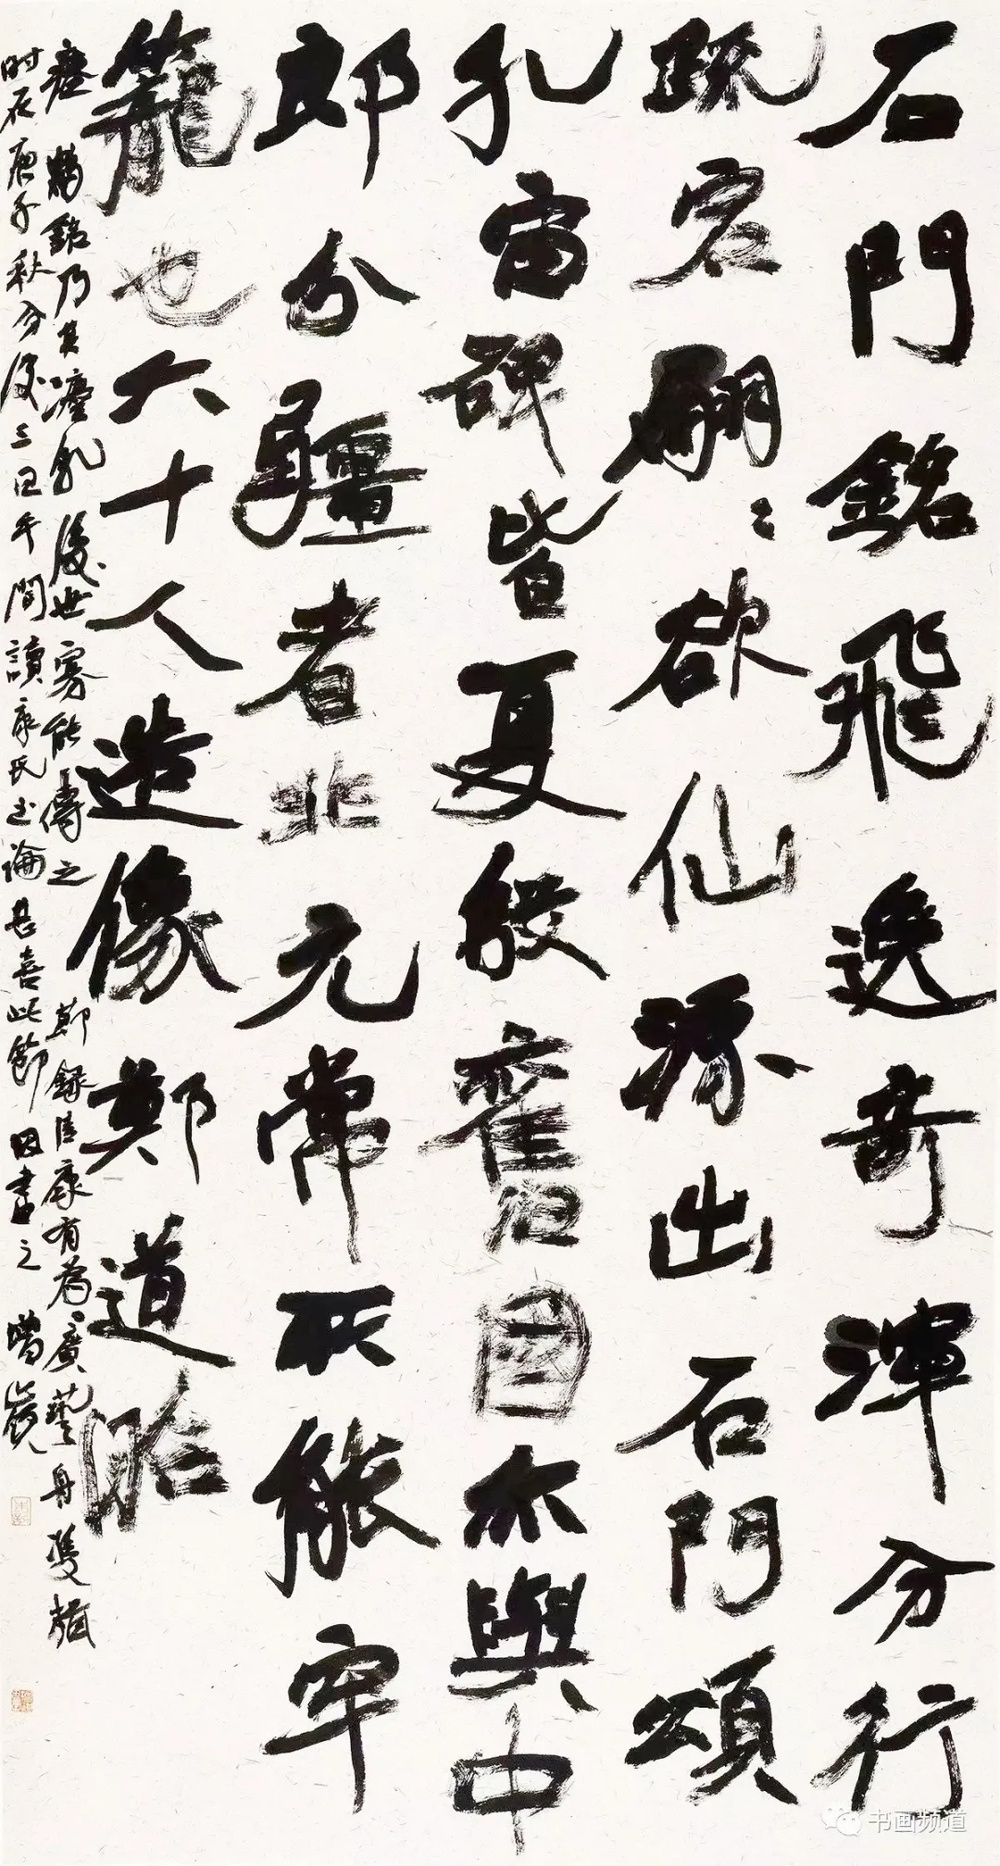 石門銘飛逸奇渾分行
疏宕翩〻欲仙源出石門頌
孔宙碑皆夏殷舊國亦與中
郎分疆者非元常所能牢
籠也六十人造像鄭道昭
瘞鶴銘乃其灋乳後世寡能傳之 節録清康有為廣藝舟雙楫
时在庚子秋分後三日午間讀康氏书論甚喜此節因書之
书画频道